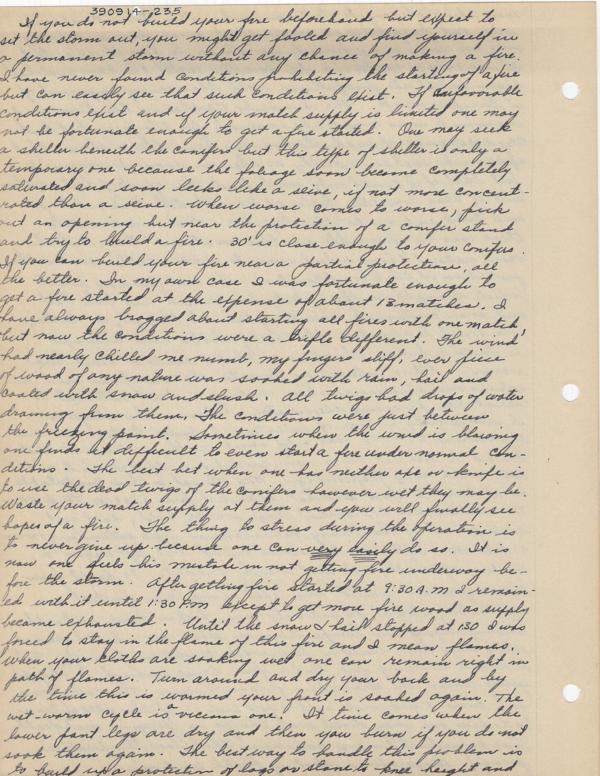 390914-235
If you do not build your fire beforehand but expect to
sit the storm out, you might get fooled and find yourself in
a permanent storm without any chance of making a fire.
I have never found conditions prohibiting the starting of a fire
but can easily see that such conditions exist. If unfavorable
conditions exist and if your match supply is limited one may
not be fortunate enough to get a fire started. One may seek
a shelter beneath the conifers but this type of shelter is only a
temporary one because the foliage soon become completely
saturated and soon leeks like a seive, if not more concent-
rated than a seive. When worse comes to worse, pick
out an opening but near the protection of a conifer stand
and try to build a fire. 30' is close enough to your conifers.
If you can build your fire near a partial protection, all
the better. In my own case I was fortunate enough to
get a fire started at the expense of about 13 matches. I
have always bragged about starting all fires with one match,
but now the conditions were a trifle different. The wind
had nearly chilled me numb, my fingers stiff, ever piece
of wood of any nature was soaked with rain, hail and
coated with snow and slush. All twigs had drops of water
draining from them. The conditions were just between
the freezing point. Sometimes when the wind is blowing
one finds it difficult to even start a fire under normal con-
ditions. The best bet when one has neither axe or knife is
to use the dead twigs of the conifers however wet they may be.
Waste your match supply at them and you will finally see
hopes of a fire. The thing to stress during the operation is
to never give up because one can very easily do so. It is
now one feels his mistake in not getting fire underway be-
fore the storm. After getting fire started at 9:30 A.M I remain-
ed with it until 1:30 PM except to get more fire wood as supply
became exhausted. Until the snow & hail stopped at 130 I was
forced to stay in the flame of this fire and I mean flames.
When your cloths are soaking wet one can remain right in
path of flames. Turn around and dry your back and by
the time this is warmed your front is soaked again. The
wet-warm cycle is a viceous one. It time comes when the
lower pant legs are dry and then you burn if you do not
soak them again. The best way to handle this problem is
to build up a protection of logs or stone to knee height and